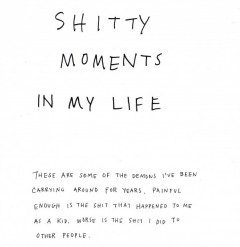 SHITTY
MOMENTS
IN MY LIFE
THESE ARE SOME OF THE DEMONS I'VE BEEN
CARRYING AROUND FOR YEARS. PAINFUL
ENOUGH IS THE SHIT THAT HAPPENED TO ME
AS A KID. WORSE IS THE SHIT I DID TO
OTHER PEOPLE.